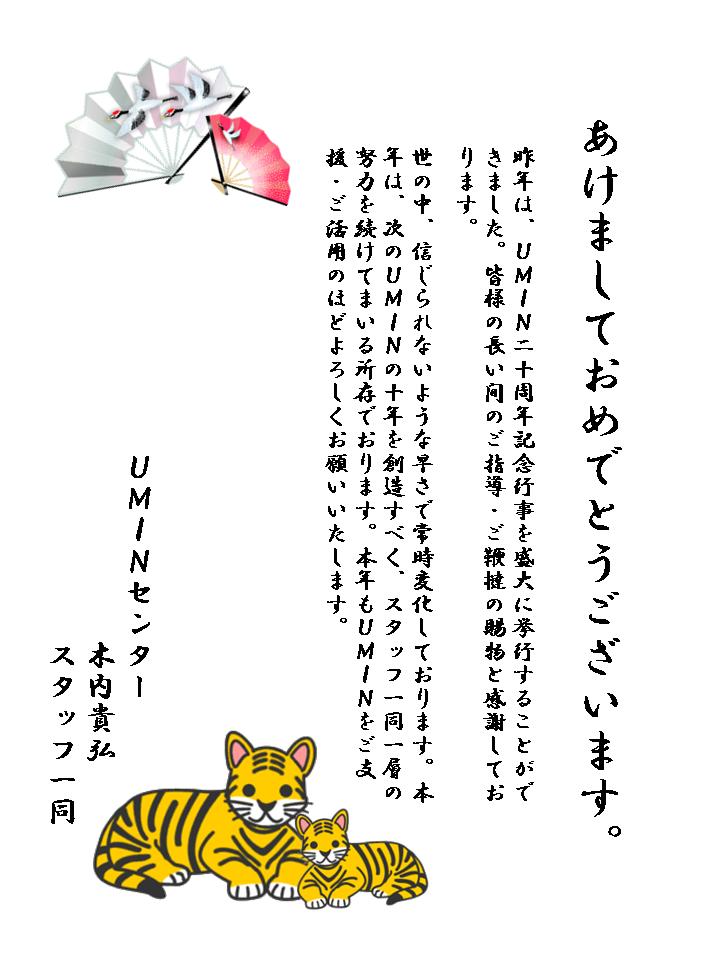 あけましておめでとうございます。
昨年は、ＵＭＩＮ二十周年記念行事を盛大に挙行することがで
きました。皆様の長い間のご指導・ご鞭撻の賜物と感謝してお
ります。
世の中、信じられないような早さで常時変化しております。本
年は、次のＵＭＩＮの十年を創造すべく、スタッフ一同一層の
努力を続けてまいる所存でおります。本年もＵＭＩＮをご支
援・ご活用のほどよろしくお願いいたします。
ＵＭＩＮセンター
木内貴弘
スタッフ一同